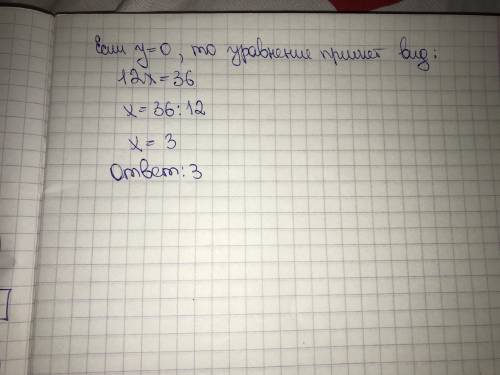 Если y=0, то уравнение примет вид:
12x=36
x=36:12
x=3
Ответ: 3